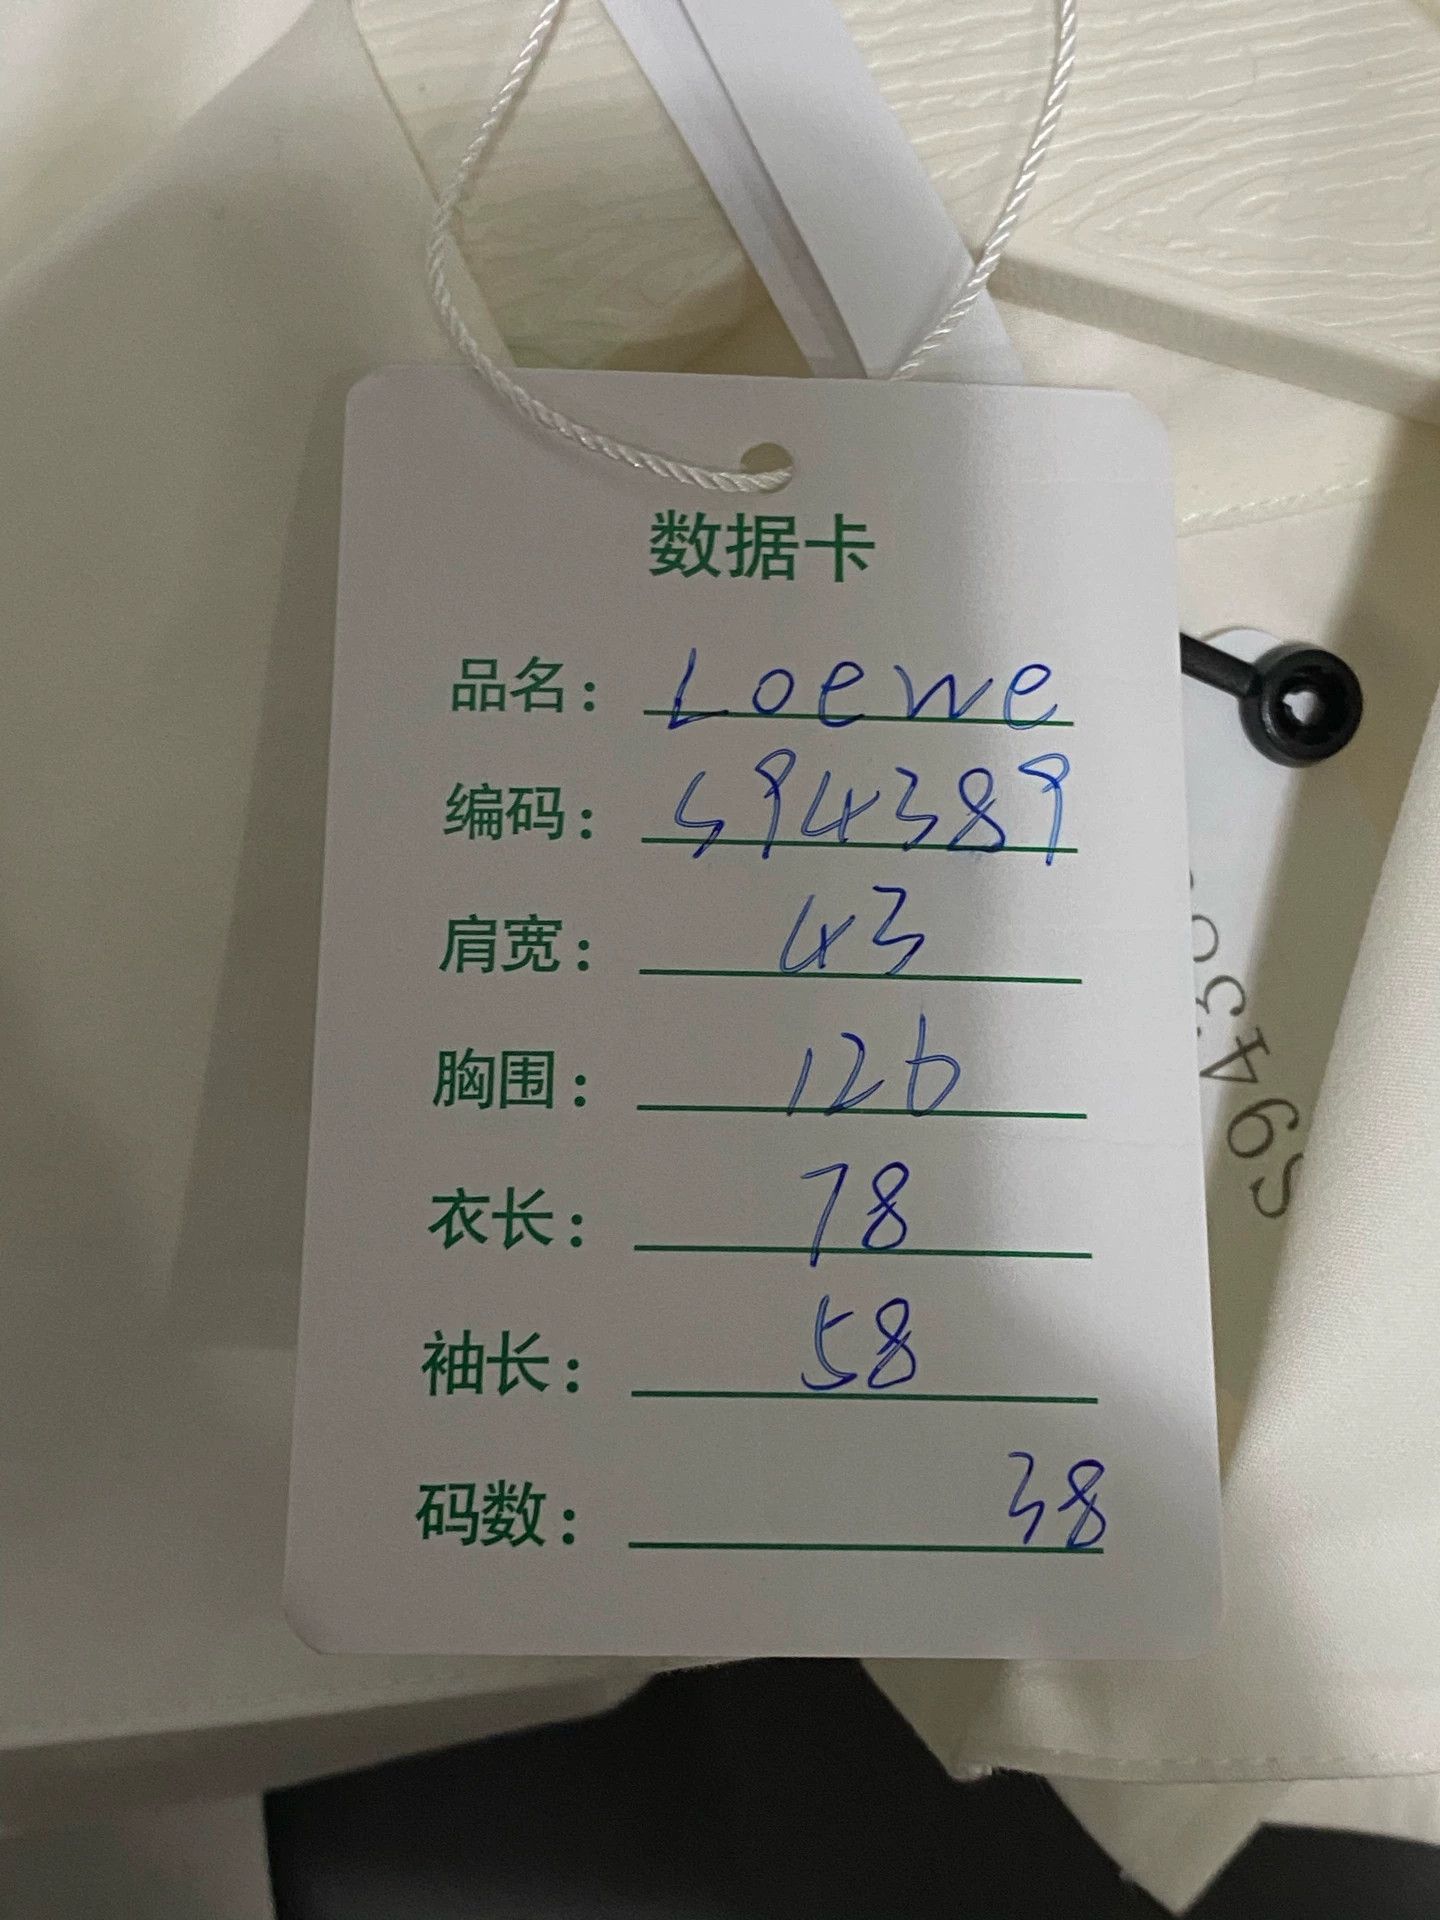 数据卡
品名: Loewe
编码: S94389
肩宽: 43
胸围: 126
衣长: 78
袖长: 58
码数: 38
S943